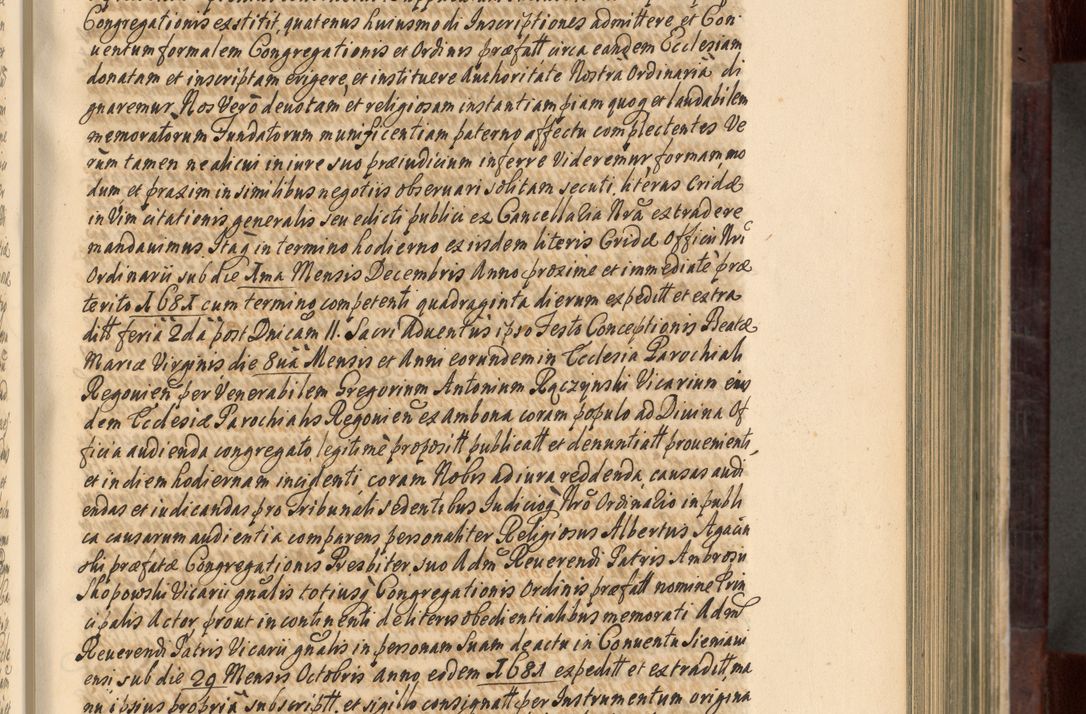 Congregationis exstitit, quatenus huiusmodi Inscriptiones admittere et Con-
uentum formalem Congregationis et Ordinis præfatt circa eandem Ecclesiam
donatam et inscriptam erigere, et instituere Authoritate Nostrâ Ordinariâ di
gnaremur. Nos Verò deuotam, et religiosam instantiam piam quoq et laudabilem
memoratorum Fundatorum munificentiam paterno affectu complectentes Ve
rum tamen ne alicui in iure suo præiudicium inferre Videremur formam, mo
dum et praxim in similibus negotiis obseruari solitam secuti, literas Cridæ
in Vim citationis generalis seu edicti publici ex Cancellaria Nrã extradere
mandauimus. Itaq in termino hodierno ex iisdem literis Cridæ Officii Nri
Ordinarii sub die 1ma Mensis Decembris Anno proxime et immediatè præ
terito 1681 cum termino competenti quadraginta dierum expeditt et extra
ditt feriâ 2dâ post Dnicam II. Sacri Aduentus ipso Festo Conceptionis Beatæ
Mariæ Virginis die 8uâ Mensis et Anni eorundem in Ecclesia Parochiali
Regouien per Venerabilem Gregorium Antonium Rączynski Vicarium eius
dem Ecclesiæ Parochialis Regouien ex Ambona coram populo ad Diuina Of
ficia audienda congregato, legitimè propositt publicatt et denuntiatt prouenienti,
et in diem hodiernam incidenti coram Nobis ad iura reddenda causas audi
endas et iudicandas pro Tribunali sedentibus Iudicioq Nrõ Ordinario in publi
ca causarum audientia comparens personaliter Religiosus Albertus Agacin
ski præfatæ Congregationis Presbiter, suo Adm Reuerendi Patris Ambrosii
Skopowski Vicarii gnalis totiusq Congregationis Ordinis præfatt nomine Prin
cipalis Actor prout in continenti de literis obedientialibus memorati Adm
Reuerendi Patris Vicarii gnalis in personam suam de actu in Conuentu Siemiaui
ensi sub die 29 Mensis Octobris anno eodem 1681 expeditt et extraditt, ma
nu ipsius propriâ subscriptt, et sigillo consignatt per Instrumentum origina